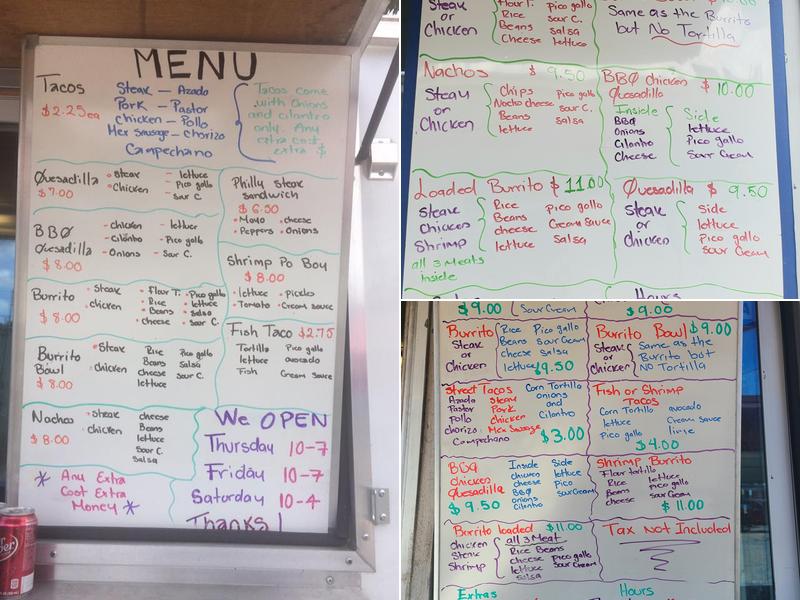 MENU
Tacos
$2.25ea
Steak — Azada
Pork — Pastor
Chicken — Pollo
Mex Sausage — Chorizo
Campechano
Tacos come
with Onions
and cilantro
only. Any
extra cost
extra $
Quesadilla
$7.00
• Steak
• Chicken
– lettuce
– Pico gallo
– Sour C.
BBQ
Quesadilla
$8.00
– chicken
– cilantro
– Onions
– lettuce
– Pico gallo
– Sour C.
Burrito
$8.00
• Steak
• chicken
• Flour T.
• Rice
• Beans
• cheese
• Pico gallo
• lettuce
• Salsa
• Sour C.
Burrito
Bowl
$8.00
• Steak
• chicken
Rice
Beans
Cheese
lettuce
Pico gallo
Salsa
Sour C.
Nachos
$8.00
• Steak
• chicken
cheese
Beans
lettuce
Sour C.
Salsa
* Any Extra
Cost Extra
Money *
Philly Steak
Sandwich
$6.50
• Mayo • cheese
• Peppers • Onions
Shrimp Po Boy
$8.00
• lettuce • Pickles
• Tomato • Cream sauce
Fish Taco $2.75
Tortilla Pico gallo
lettuce avocado
Fish Cream Sauce
We OPEN
Thursday 10-7
Friday 10-7
Saturday 10-4
Thanks!
Steak
or
Chicken
Flour T.
Rice
Beans
Cheese
Pico gallo
Sour C.
Salsa
lettuce
Same as the Burrito
but No Tortilla
Nachos $9.50
Steak
or
Chicken
Chips Pico gallo
Nacho cheese Sour C.
Beans Salsa
lettuce
BBQ Chicken
Quesadilla $10.00
Inside
BBQ
Onions
Cilantro
Cheese
Side
lettuce
Pico gallo
Sour Cream
Loaded Burrito $11.00
Steak
Chicken
Shrimp
all 3 Meats
Inside
Rice Pico gallo
Beans Cream Sauce
cheese
lettuce Salsa
Quesadilla $9.50
Steak
or
chicken
Side
lettuce
Pico gallo
Sour Cream
$9.00
Sour Cream
$9.00
Burrito
Steak
or
Chicken
Rice Pico gallo
Beans Sour Cream
cheese Salsa
lettuce $9.50
Burrito Bowl $9.00
Steak
or
Chicken
Same as the
Burrito but
NO Tortilla
Street Tacos
Azada Steak
Pastor Pork
Pollo Chicken
chorizo Mex Sausage
Campechano
Corn Tortilla
onions
and
Cilantro
$3.00
Fish or Shrimp
Tacos
Corn Tortilla avocado
lettuce Cream Sauce
Pico gallo lime
$4.00
BBQ
Chicken
Quesadilla
$9.50
Inside
chicken
cheese
BBQ
onions
Cilantro
Side
lettuce
Pico
Sour Cream
Shrimp Burrito
Flour tortilla
Rice lettuce
Beans Pico gallo
cheese Sour Cream
$11.00
Burrito loaded $11.00
chicken
Steak
Shrimp
all 3 Meat
Rice Beans
cheese Pico gallo
lettuce Sour Cream
Salsa
Tax Not Included
Extras
Hours